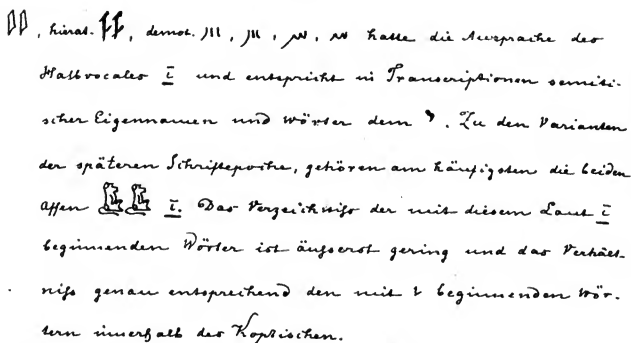 𓇌, hierat. , demot. , , , hatte die Aussprache des
Halbvocales ī und entspricht in Transcriptionen semiti-
scher Eigennamen und Wörter dem י. Zu den Varianten
der späteren Schriftepoche, gehören am häufigsten die beiden
Affen ī. Das Verzeichniss der mit diesem Laut ī
beginnenden Wörter ist äusserst gering und das Verhält-
niss genau entsprechend den mit ι beginnenden Wör-
tern innerhalb des Koptischen.